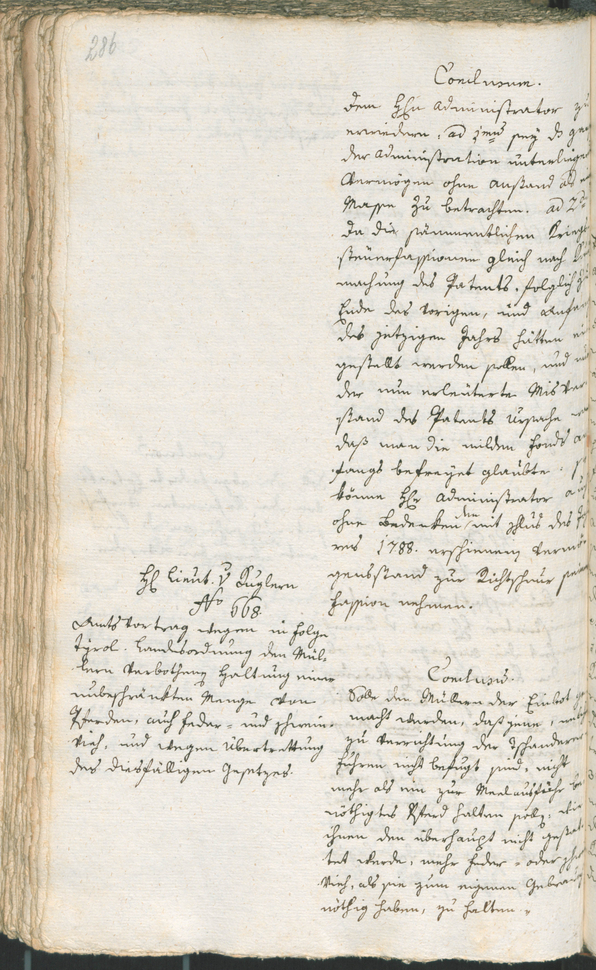 286
Conclusum.
dem Hhn Administrator zu
erwiedern. ad 1mum sey das
der Administration unterliegende
Vermögen ohne Anstand als
Masse zu betrachten. ad 2dum
da die sämmentlichen Kriegs
steuerfassionen gleich nach
machung des Patents, folglich
Ende des vorigen, und Anfang
des jetzigen Jahrs hätten
gestellt werden sollen, und
der nun erleuterte Misver
stand des Patents Ursache
daß man die milden Fonds
fangs befreyet glaubte.
könne Hhr Administrator
ohne Bedenken den mit
res 1788. erschienenen Vermö
gensstand zur Richtschnur seiner
Fassion nehmen.
Hh Lieut. v Kuglern
No 668.
Amtsvortrag wegen in folge
Tÿrol. Landesordnung den Mül-
lern verbothenen Haltung einer
unbeschränkten Menge von
Pferden, auch Feder- und Schwein-
vieh, und wegen Übertrettung
des diesfälligen Gesetzes.
Conclusum.
Solle den Müllern der Einbot
macht werden, daß jene,
zu Verrichtung der
Fuhren nicht befugt sind, nicht
mehr als ein zur Meelausfuhr
nöthiges Pferd halten solle, wie
ihnen den überhaupt nicht gestat
tet werde, mehr Feder- oder
Vieh, als sie zum eigenen Gebrauch
nöthig haben, zu halten.